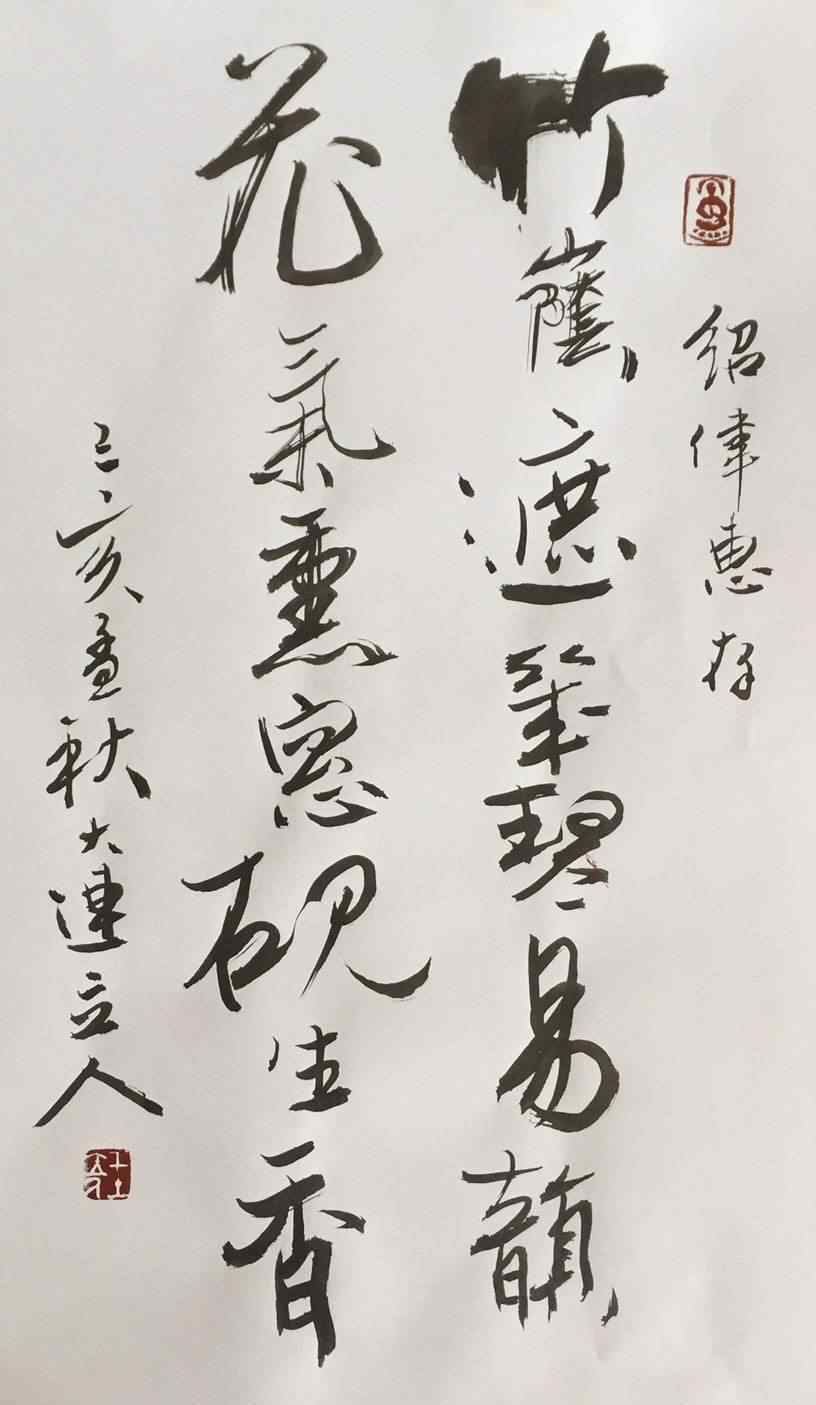 紹偉惠存
竹蔭遮幾琴易韻
花氣熏窗硯生香
己亥孟秋大連立人